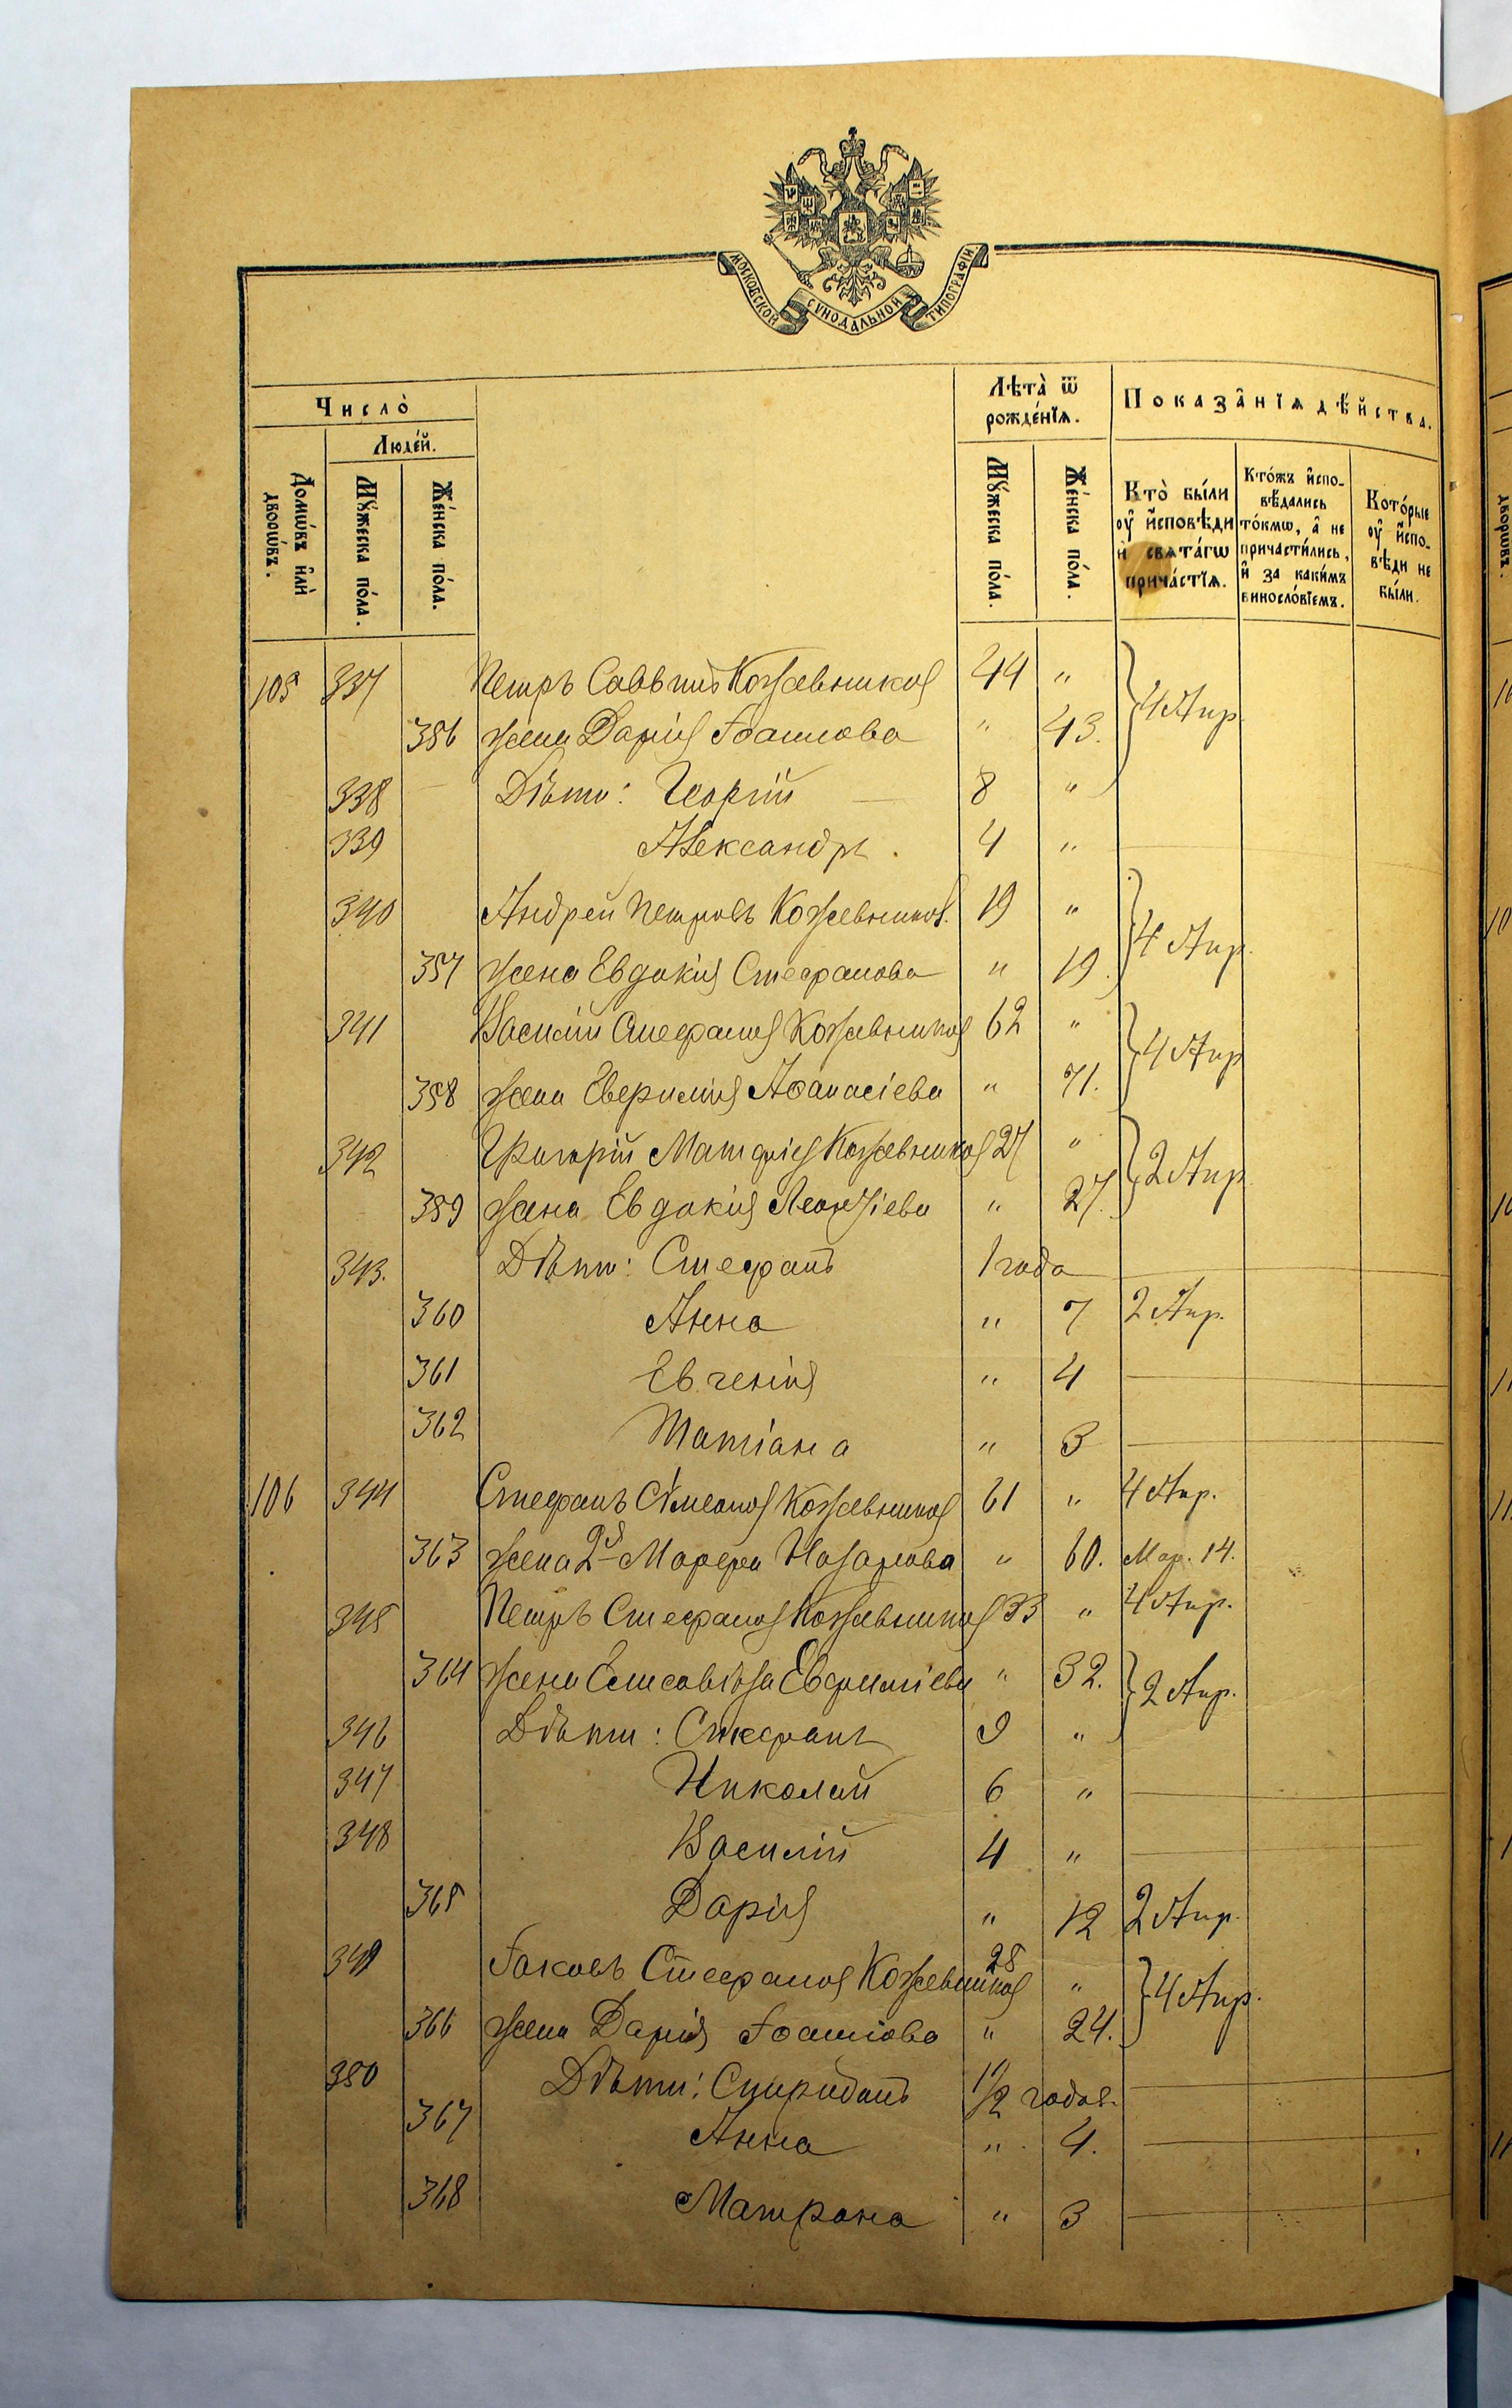 МОСКОВСКОЙ СѴНОДАЛЬНОЙ ТИПОГРАФІИ.
Число̀
Людéй.
Домѡ́въ и҆лѝ дворѡ́въ.
Мꙋ́жеска по́ла.
Же́нска по́ла.
Лѣта̀ ѿ рожде́нїѧ.
Мꙋ́жеска по́ла.
Же́нска по́ла.
Показа̂нїѧ дѣ́йства.
Кто̀ бы́ли ᲂу҆ и҆сповѣди и҆ свѧта́гѡ прича́стїѧ.
Кто́жъ и҆сповѣ́дались то́кмѡ, а҆ не причасти́лись, и҆ за каки́мъ винословїемъ.
Кото́рые ᲂу҆ и҆сповѣди не бы́ли.
105 337 Петръ Саввинъ Кожевников 44 " 4 Апр.
356 жена Дарія Іоаннова " 43.
338 Дѣти: Георгій 8 "
339 Александръ. 4 "
340 Андрей Петровъ Кожевников. 19 " 4 Апр.
357 жена Евдокія Стефанова " 19.
341 Василій Стефанов Кожевников 62 " 4 Апр
358 жена Евфимія Афанасіева " 71.
342 Григорій Матфіев Кожевников 27 " 2 Апр
359 жена Евдокія Леонтіева " 27.
343. Дѣти: Стефанъ 1 года
360 Анна " 7 2 Апр.
361 Евгенія " 4
362 Татіана " 3
106 344 Стефанъ Сѷмеонов Кожевников 61 " 4 Апр.
363 жена 2я Марфа Назарова " 60. Мар. 14.
345 Петръ Стефанов Кожевников 33 " 4 Апр.
364 жена Елисавѣта Евфиміева " 32. 2 Апр.
346 Дѣти: Стефанъ 9 "
347 Николай 6 "
348 Василій 4 "
365 Дарія " 12 2 Апр.
349 Іаковъ Стефанов Кожевников 28 " 4 Апр.
366 жена Дарія Іоаннова " 24.
350 Дѣти: Спиридонъ 1/2 годов.
367 Анна " 4.
368 Матрона " 3